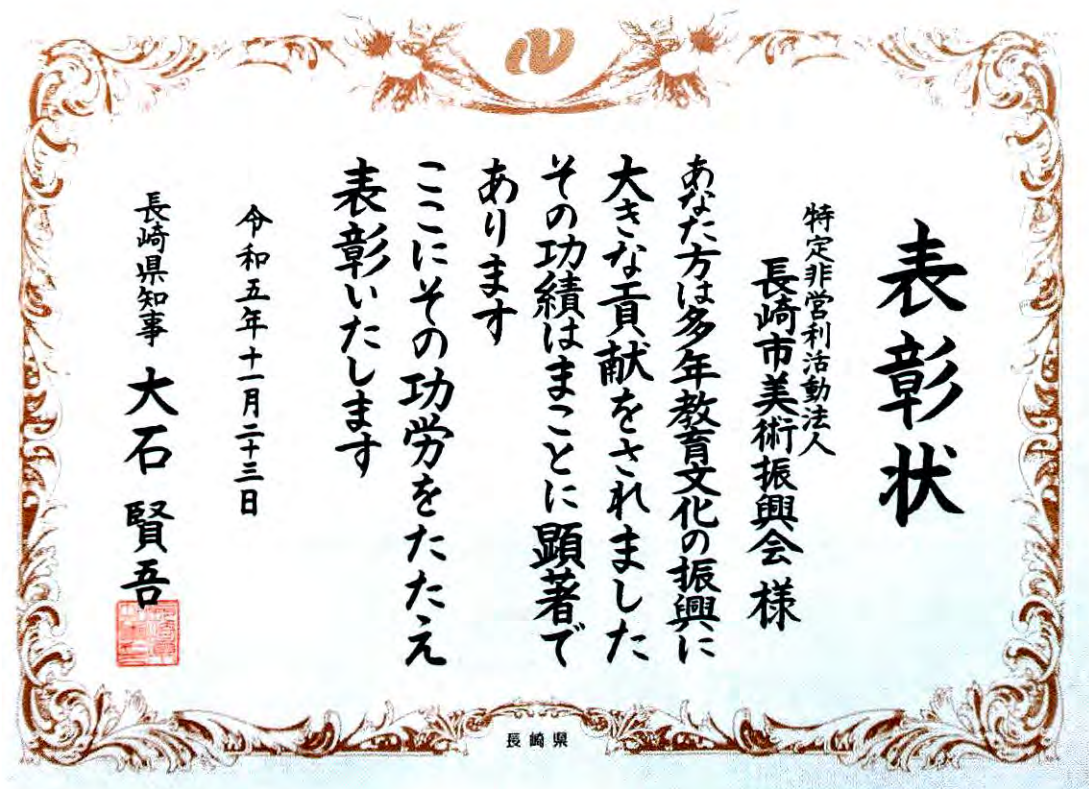 表彰状
特定非営利活動法人
長崎市美術振興会 様
あなた方は多年教育文化の振興に
大きな貢献をされました
その功績はまことに顕著で
あります
ここにその功労をたたえ
表彰いたします
令和五年十一月二十三日
長崎県知事 大石 賢吾
長崎県